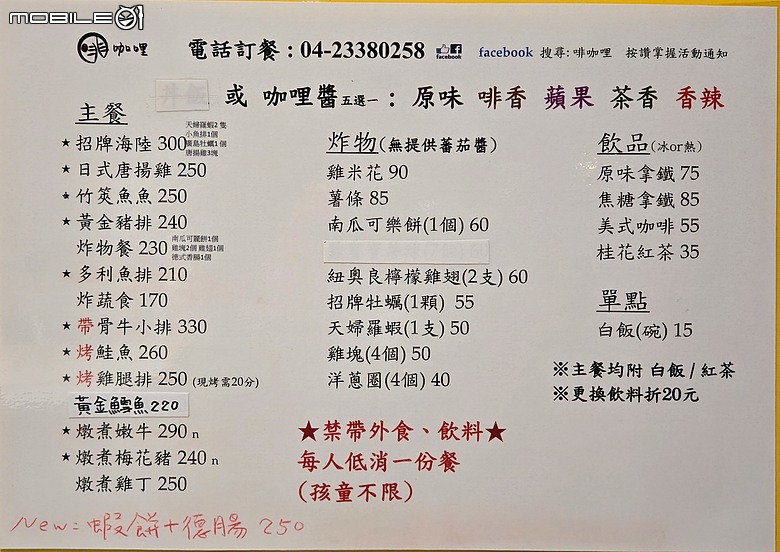 MOBILE01
啡咖哩 電話訂餐：04-23380258 facebook facebook 搜尋: 啡咖哩 按讚掌握活動通知
或 咖哩醬五選一： 原味 啡香 蘋果 茶香 香辣
主餐
★招牌海陸 300 天婦羅蝦2隻 小魚排1個 廣島牡蠣1個 唐揚雞3塊
★日式唐揚雞 250
★竹筴魚魚 250
★黃金豬排 240
炸物餐 230 南瓜可麗餅1個 雞塊2個 雞翅1個 德式香腸1個
★多利魚排 210
炸蔬食 170
★帶骨牛小排 330
★烤鮭魚 260
★烤雞腿排 250 (現烤需20分)
黃金鱈魚220
★燉煮嫩牛 290 n
★燉煮梅花豬 240 n
燉煮雞丁 250
New: 蝦餅+德腸 250
炸物(無提供蕃茄醬)
雞米花 90
薯條 85
南瓜可樂餅(1個) 60
紐奧良檸檬雞翅(2支) 60
招牌牡蠣(1顆) 55
天婦羅蝦(1支) 50
雞塊(4個) 50
洋蔥圈(4個) 40
★禁帶外食、飲料★
每人低消一份餐
(孩童不限)
飲品(冰or熱)
原味拿鐵 75
焦糖拿鐵 85
美式咖啡 55
桂花紅茶 35
單點
白飯(碗) 15
※主餐均附 白飯/紅茶
※更換飲料折20元